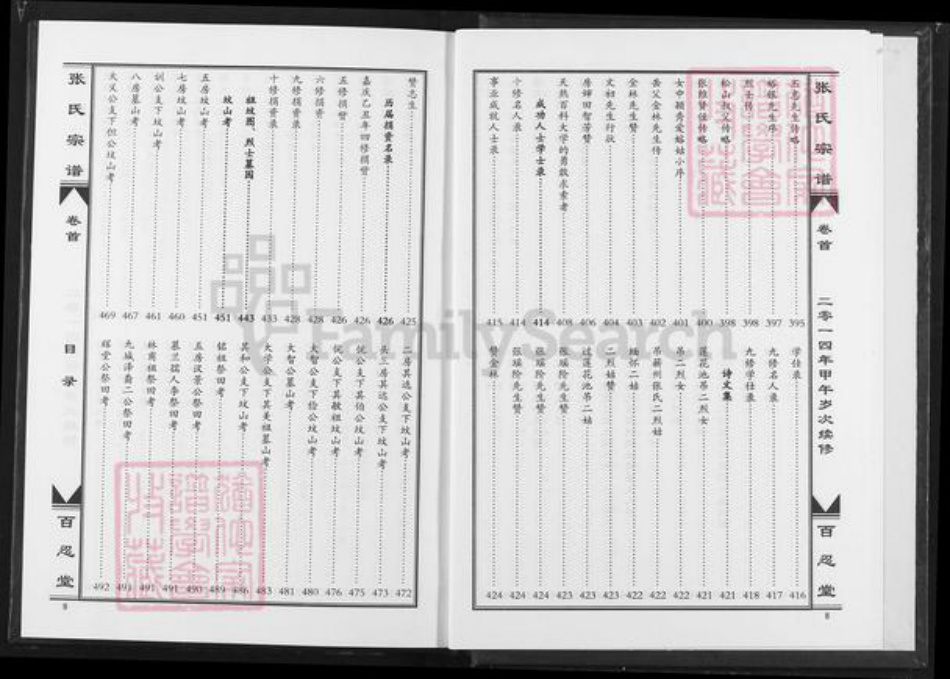 张氏宗谱
卷首
二零一四年甲午岁次续修
百忍堂
8
395
先生序 397
烈士传 398
松山叔父传略 398
张维贤侄传略 400
女中颖秀爱姑姑小序 401
岳父金林先生传 402
金林先生赞 403
文初先生行状 404
房婶田智芳赞 406
天然百科大学的勇敢求索者 408
成功人士学士录 414
十修名人录 414
事业成就人士录 415
学仕录 416
九修名人录 417
九修学仕录 418
诗文集 421
莲花池吊二烈女 421
吊二烈女 422
吊蕲州张氏二烈姑 422
缅怀二姑 422
二烈姑赞 423
过莲花池吊二姑 423
张瑶阶先生赞 423
张瑶阶先生赞 424
张瑶阶先生赞 424
赞金林 424
张氏宗谱
卷首
目录
百忍堂
9
赞志生 425
历届捐资名录 426
嘉庆乙丑年四修捐赀 426
五修捐赀 426
六修捐资 428
九修捐资录 428
十修捐资录 433
祖坟图、烈士墓园 443
坟山考 451
五房坟山考 451
七房坟山考 460
训公支下坟山考 461
八房墓山考 467
大义公支下但公坟山考 469
二房其选公支下坟山考 472
长三房其远公支下坟山考 473
优公支下其伯公坟山考 475
优公支下其敏祖坟山考 476
大智公支下俭公坟山考 480
大智公墓山考 481
大学公支下其美祖墓山考 483
其和公支下坟山考 486
铭祖祭田考 489
五房汉景公祭田考 490
慕兰孺人李祭田考 491
林商祖祭田考 491
九城泽翦二公祭田考 491
辉堂公祭田考 492